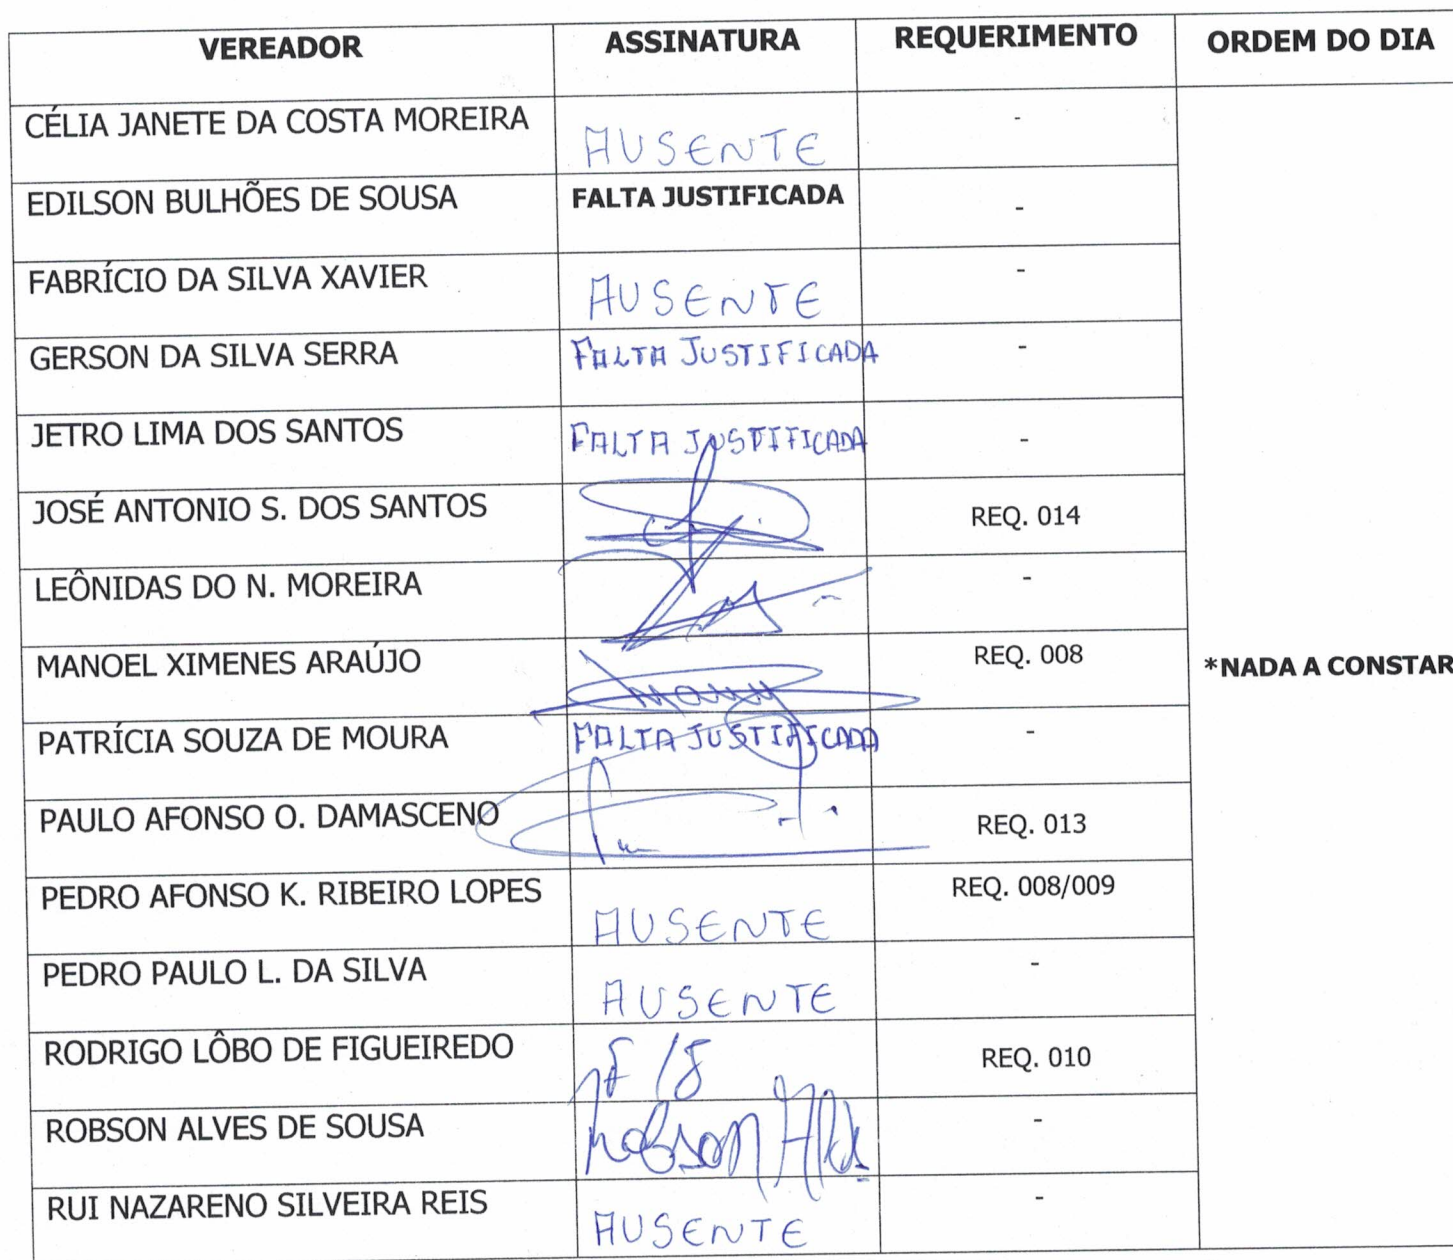 VEREADOR ASSINATURA REQUERIMENTO ORDEM DO DIA
CÉLIA JANETE DA COSTA MOREIRA AUSENTE -
EDILSON BULHÕES DE SOUSA FALTA JUSTIFICADA -
FABRÍCIO DA SILVA XAVIER AUSENTE -
GERSON DA SILVA SERRA FALTA JUSTIFICADA -
JETRO LIMA DOS SANTOS FALTA JUSTIFICADA -
JOSÉ ANTONIO S. DOS SANTOS REQ. 014
LEÔNIDAS DO N. MOREIRA -
MANOEL XIMENES ARAÚJO REQ. 008 *NADA A CONSTAR
PATRÍCIA SOUZA DE MOURA FALTA JUSTIFICADA -
PAULO AFONSO O. DAMASCENO REQ. 013
PEDRO AFONSO K. RIBEIRO LOPES AUSENTE REQ. 008/009
PEDRO PAULO L. DA SILVA AUSENTE -
RODRIGO LÔBO DE FIGUEIREDO REQ. 010
ROBSON ALVES DE SOUSA Robson -
RUI NAZARENO SILVEIRA REIS AUSENTE -